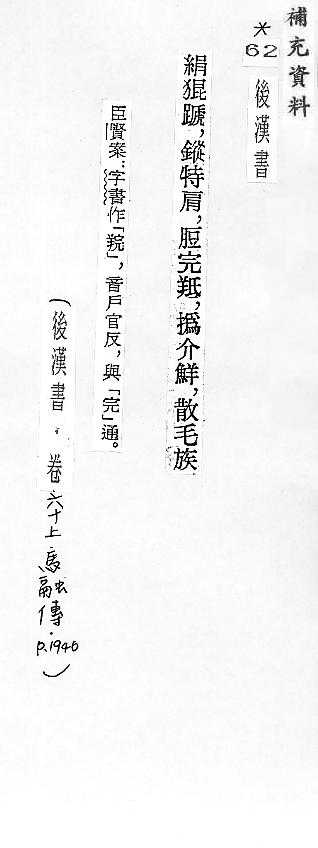 補充資料
*62
後漢書
絹猑蹏，鏦特肩，脰完羝，撝介鮮，散毛族
臣賢案：字書作「羦」，音戶官反，與「完」通。
（後漢書．卷六十上馬融傳．p.1946）